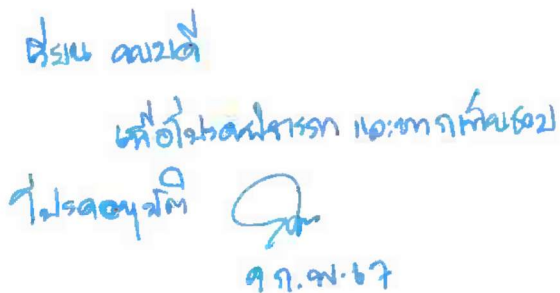 เรียน คณบดี
เพื่อโปรดพิจารณา และหากเห็นชอบ
โปรดอนุมัติ
9 ก.พ. 67